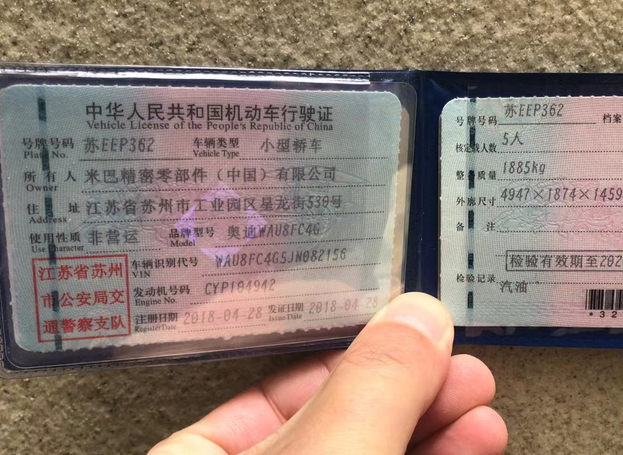 中华人民共和国机动车行驶证
Vehicle License of the People's Republic of China
号牌号码 苏EEP362 车辆类型 小型轿车
Plate No. Vehicle Type
所有人 米巴精密零部件（中国）有限公司
Owner
住址 江苏省苏州市工业园区星龙街539号
Address
使用性质 非营运 品牌型号 奥迪WAU8FC4G
Use Character Model
江苏省苏州
市公安局交
通警察支队
车辆识别代号 WAU8FC4G5JN082156
VIN
发动机号码 CYP104942
Engine No.
注册日期 2018-04-28 发证日期 2018-04-28
Register Date Issue Date
号牌号码 苏EEP362 档案
核定载人数 5人
整备质量 1885kg
外廓尺寸 4947×1874×1459
备注
检验有效期至202
检验记录
汽油
*32